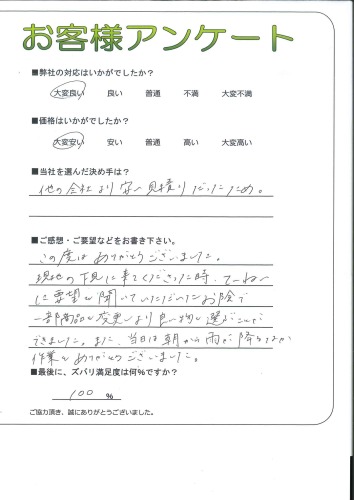 お客様アンケート
■弊社の対応はいかがでしたか？
大変良い 良い 普通 不満 大変不満
■価格はいかがでしたか？
大変安い 安い 普通 高い 大変高い
■当社を選んだ決め手は？
他の会社より安い見積りだったため。
■ご感想・ご要望などをお書き下さい。
この度はありがとうございました。
現地の下見に来てくださった時、ていねい
に要望を聞いていただいたお陰で
一部商品を変更しより良い物を選ぶことが
できました。また、当日は朝から雨が降るなか
作業をありがとうございました。
■最後に、ズバリ満足度は何％ですか？
100 %
ご協力頂き、誠にありがとうございました。